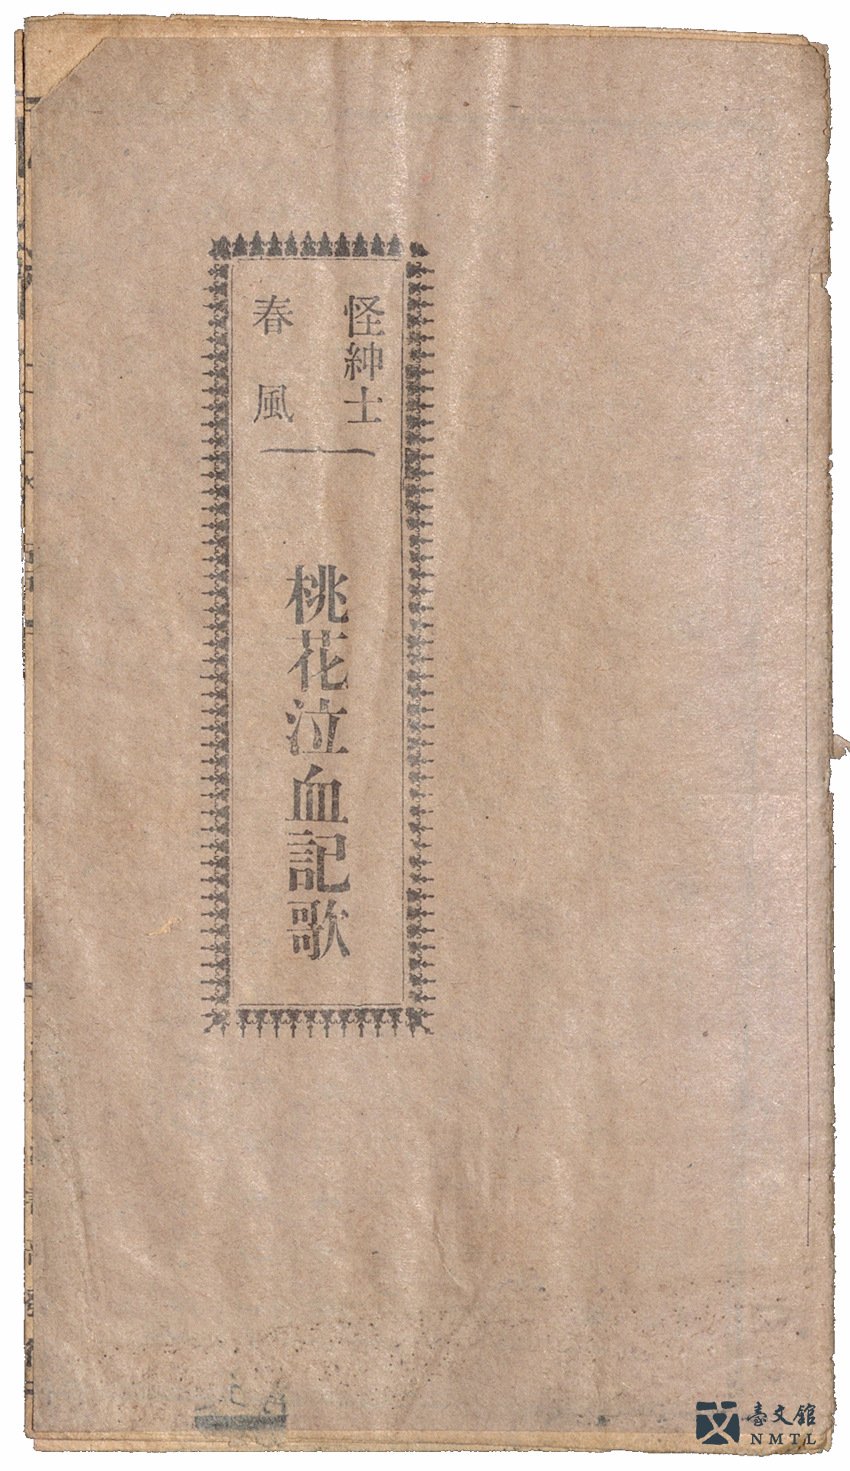 怪紳士
春風
桃花泣血記歌
臺文館
NMTL